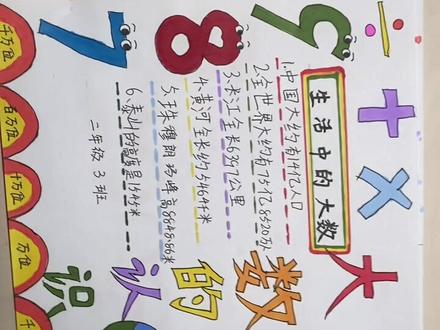 7 8 9 ÷ + ×
生活中的大数
1.中国大约有14亿人口
2.全世界大约有75亿8520万人
3.长江全长6397公里
4.黄河全长约5464千米
5.珠穆朗玛峰高8848.86米
6.泰山的高度是1545米
二年级3班
大数的认识
千万位
百万位
十万位
万位
千